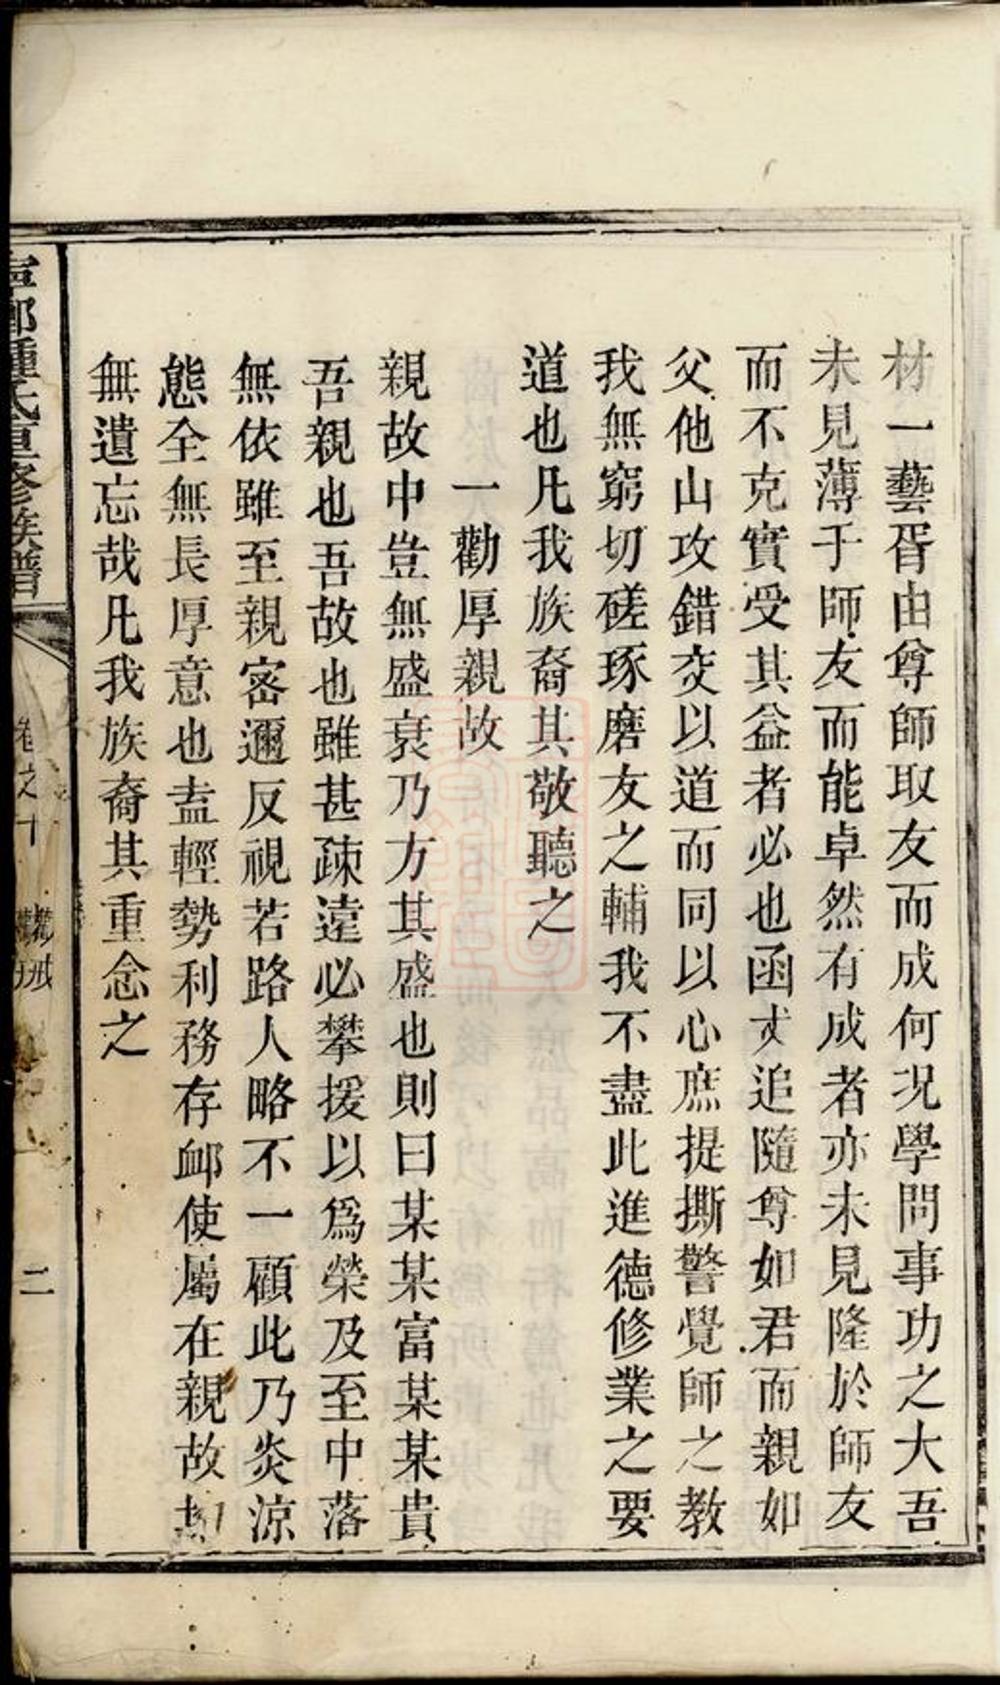 材一藝胥由尊師取友而成何况學問事功之大吾
未見薄于師友而能卓然有成者亦未見隆於師友
而不克實受其益者必也函丈追隨尊如君而親如
父他山攻錯交以道而同以心庶提撕警覺師之教
我無窮切磋琢磨友之輔我不盡此進德修業之要
道也凡我族裔其敬聽之
一勸厚親故
親故中豈無盛衰乃方其盛也則曰某某富某某貴
吾親也吾故也雖甚疎遠必攀援以爲榮及至中落
無依雖至親密邇反視若路人略不一顧此乃炎涼
態全無長厚意也盍輕勢利務存卹使屬在親故
無遺忘哉凡我族裔其重念之
鄉鍾氏重修族譜
卷之十
勸戒
二